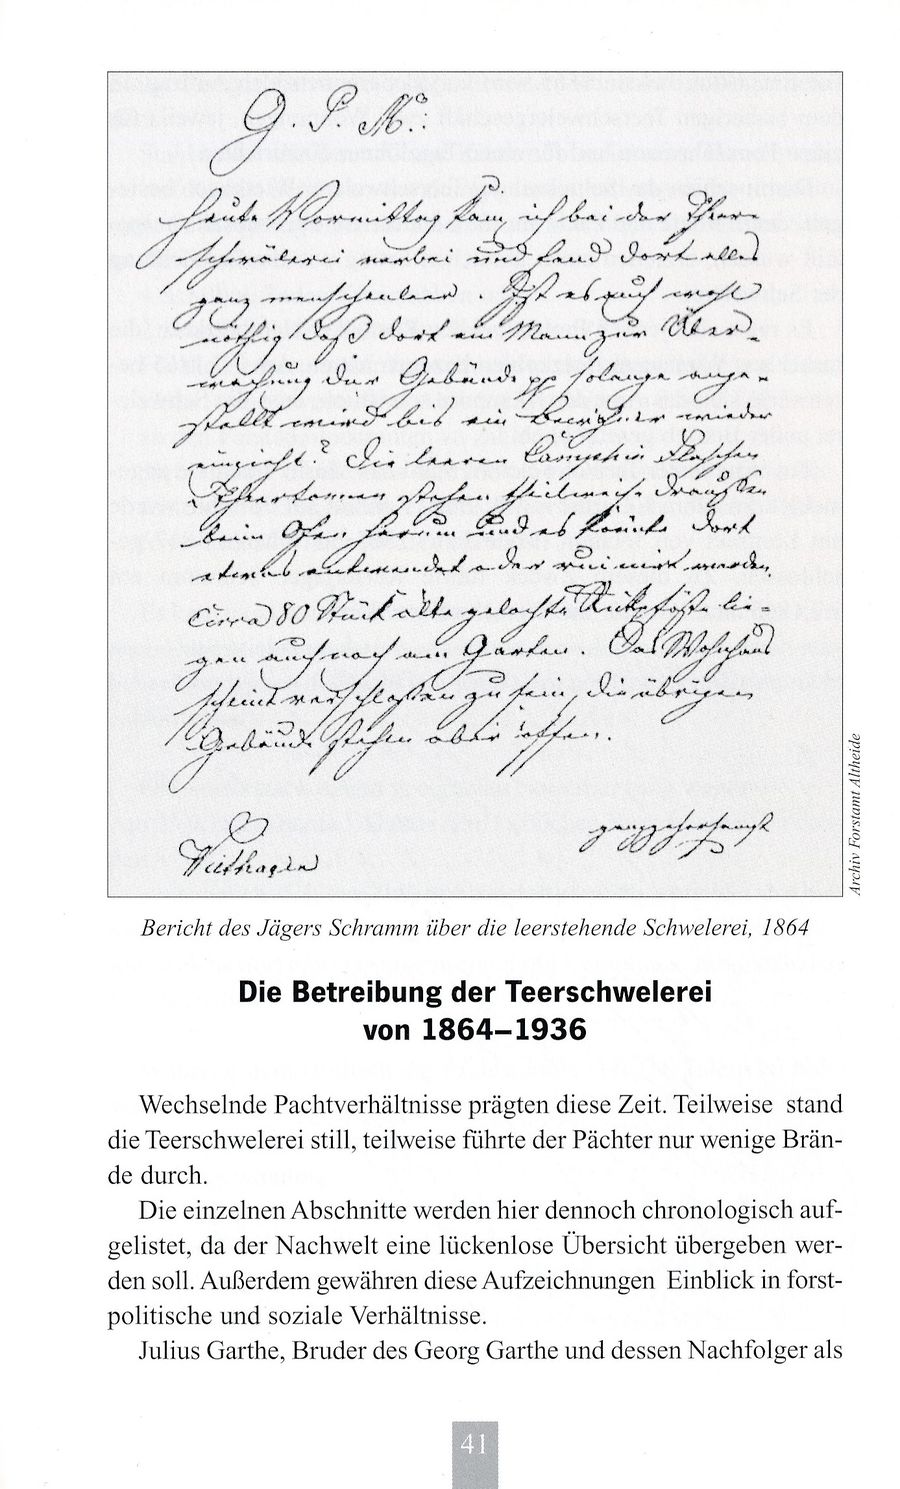 G. P. M.
Heute Vormittag kam ich bei der Theer-
schwälerei vorbei und fand dort alles
ganz menschenleer. Ist es auch wohl
nöthig daß dort ein Mann zur Über-
wachung der Gebäude pp solange ange-
stellt wird bis ein Bewohner wieder
einzieht? Die leeren Camphin Flaschen
Theertonnen stehen theilweise draußen
beim Ofen herum und es könnte dort
etwas entwendet oder ruinirt werden,
Circa 80 Stück alte gelochte lie-
gen auch noch am Garten. Das Wohnhaus
scheint verschlossen zu sein, die übrigen
Gebäude stehen aber offen.
ganz gehorsamst
Archiv Forstamt Altheide
Bericht des Jägers Schramm über die leerstehende Schwelerei, 1864
Die Betreibung der Teerschwelerei
von 1864–1936
Wechselnde Pachtverhältnisse prägten diese Zeit. Teilweise stand
die Teerschwelerei still, teilweise führte der Pächter nur wenige Brän-
de durch.
Die einzelnen Abschnitte werden hier dennoch chronologisch auf-
gelistet, da der Nachwelt eine lückenlose Übersicht übergeben wer-
den soll. Außerdem gewähren diese Aufzeichnungen Einblick in forst-
politische und soziale Verhältnisse.
Julius Garthe, Bruder des Georg Garthe und dessen Nachfolger als
41